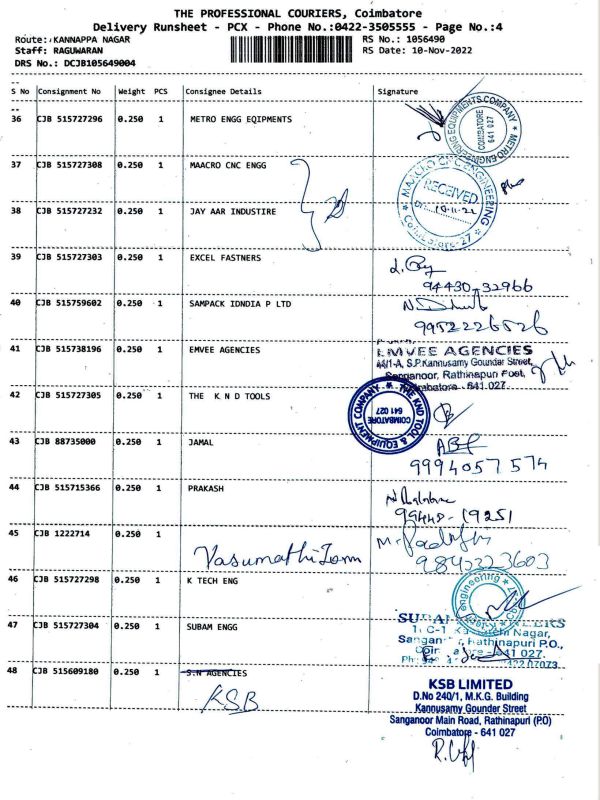 THE PROFESSIONAL COURIERS, Coimbatore
Delivery Runsheet - PCX - Phone No.:0422-3505555 - Page No.:4
Route: KANNAPPA NAGAR RS No.: 1056490
Staff: RAGUWARAN RS Date: 10-Nov-2022
DRS No.: DCJB105649004
S No Consignment No Weight PCS Consignee Details Signature
36 CJB 515727296 0.250 1 METRO ENGG EQIPMENTS
METRO ENGINEERING EQUIPMENTS COMPANY COIMBATORE 641 027
37 CJB 515727308 0.250 1 MAACRO CNC ENGG
MAACRO CNC ENGINEERING RECEIVED Coimbatore-27
38 CJB 515727232 0.250 1 JAY AAR INDUSTIRE
39 CJB 515727303 0.250 1 EXCEL FASTNERS
94430 32966
40 CJB 515759602 0.250 1 SAMPACK IDNDIA P LTD
9952226526
41 CJB 515738196 0.250 1 EMVEE AGENCIES
EMVEE AGENCIES
46/1-A, S.P.Kannusamy Gounder Street,
Sanganoor, Rathinapuri Post,
Coimbatore - 641 027.
42 CJB 515727305 0.250 1 THE K N D TOOLS
THE KND TOOL & EQUIPMENT COMPANY COIMBATORE 641 027
43 CJB 88735000 0.250 1 JAMAL
9994057574
44 CJB 515715366 0.250 1 PRAKASH
99448-19251
45 CJB 1222714 0.250 1
Vasumathi
46 CJB 515727298 0.250 1 K TECH ENG
Engineering
47 CJB 515727304 0.250 1 SUBAM ENGG
Nagar,
Rathinapuri P.O.,
641 027.
48 CJB 515609180 0.250 1 S.N AGENCIES
KSB
KSB LIMITED
D.No 240/1, M.K.G. Building
Kannusamy Gounder Street
Sanganoor Main Road, Rathinapuri (P.O)
Coimbatore - 641 027